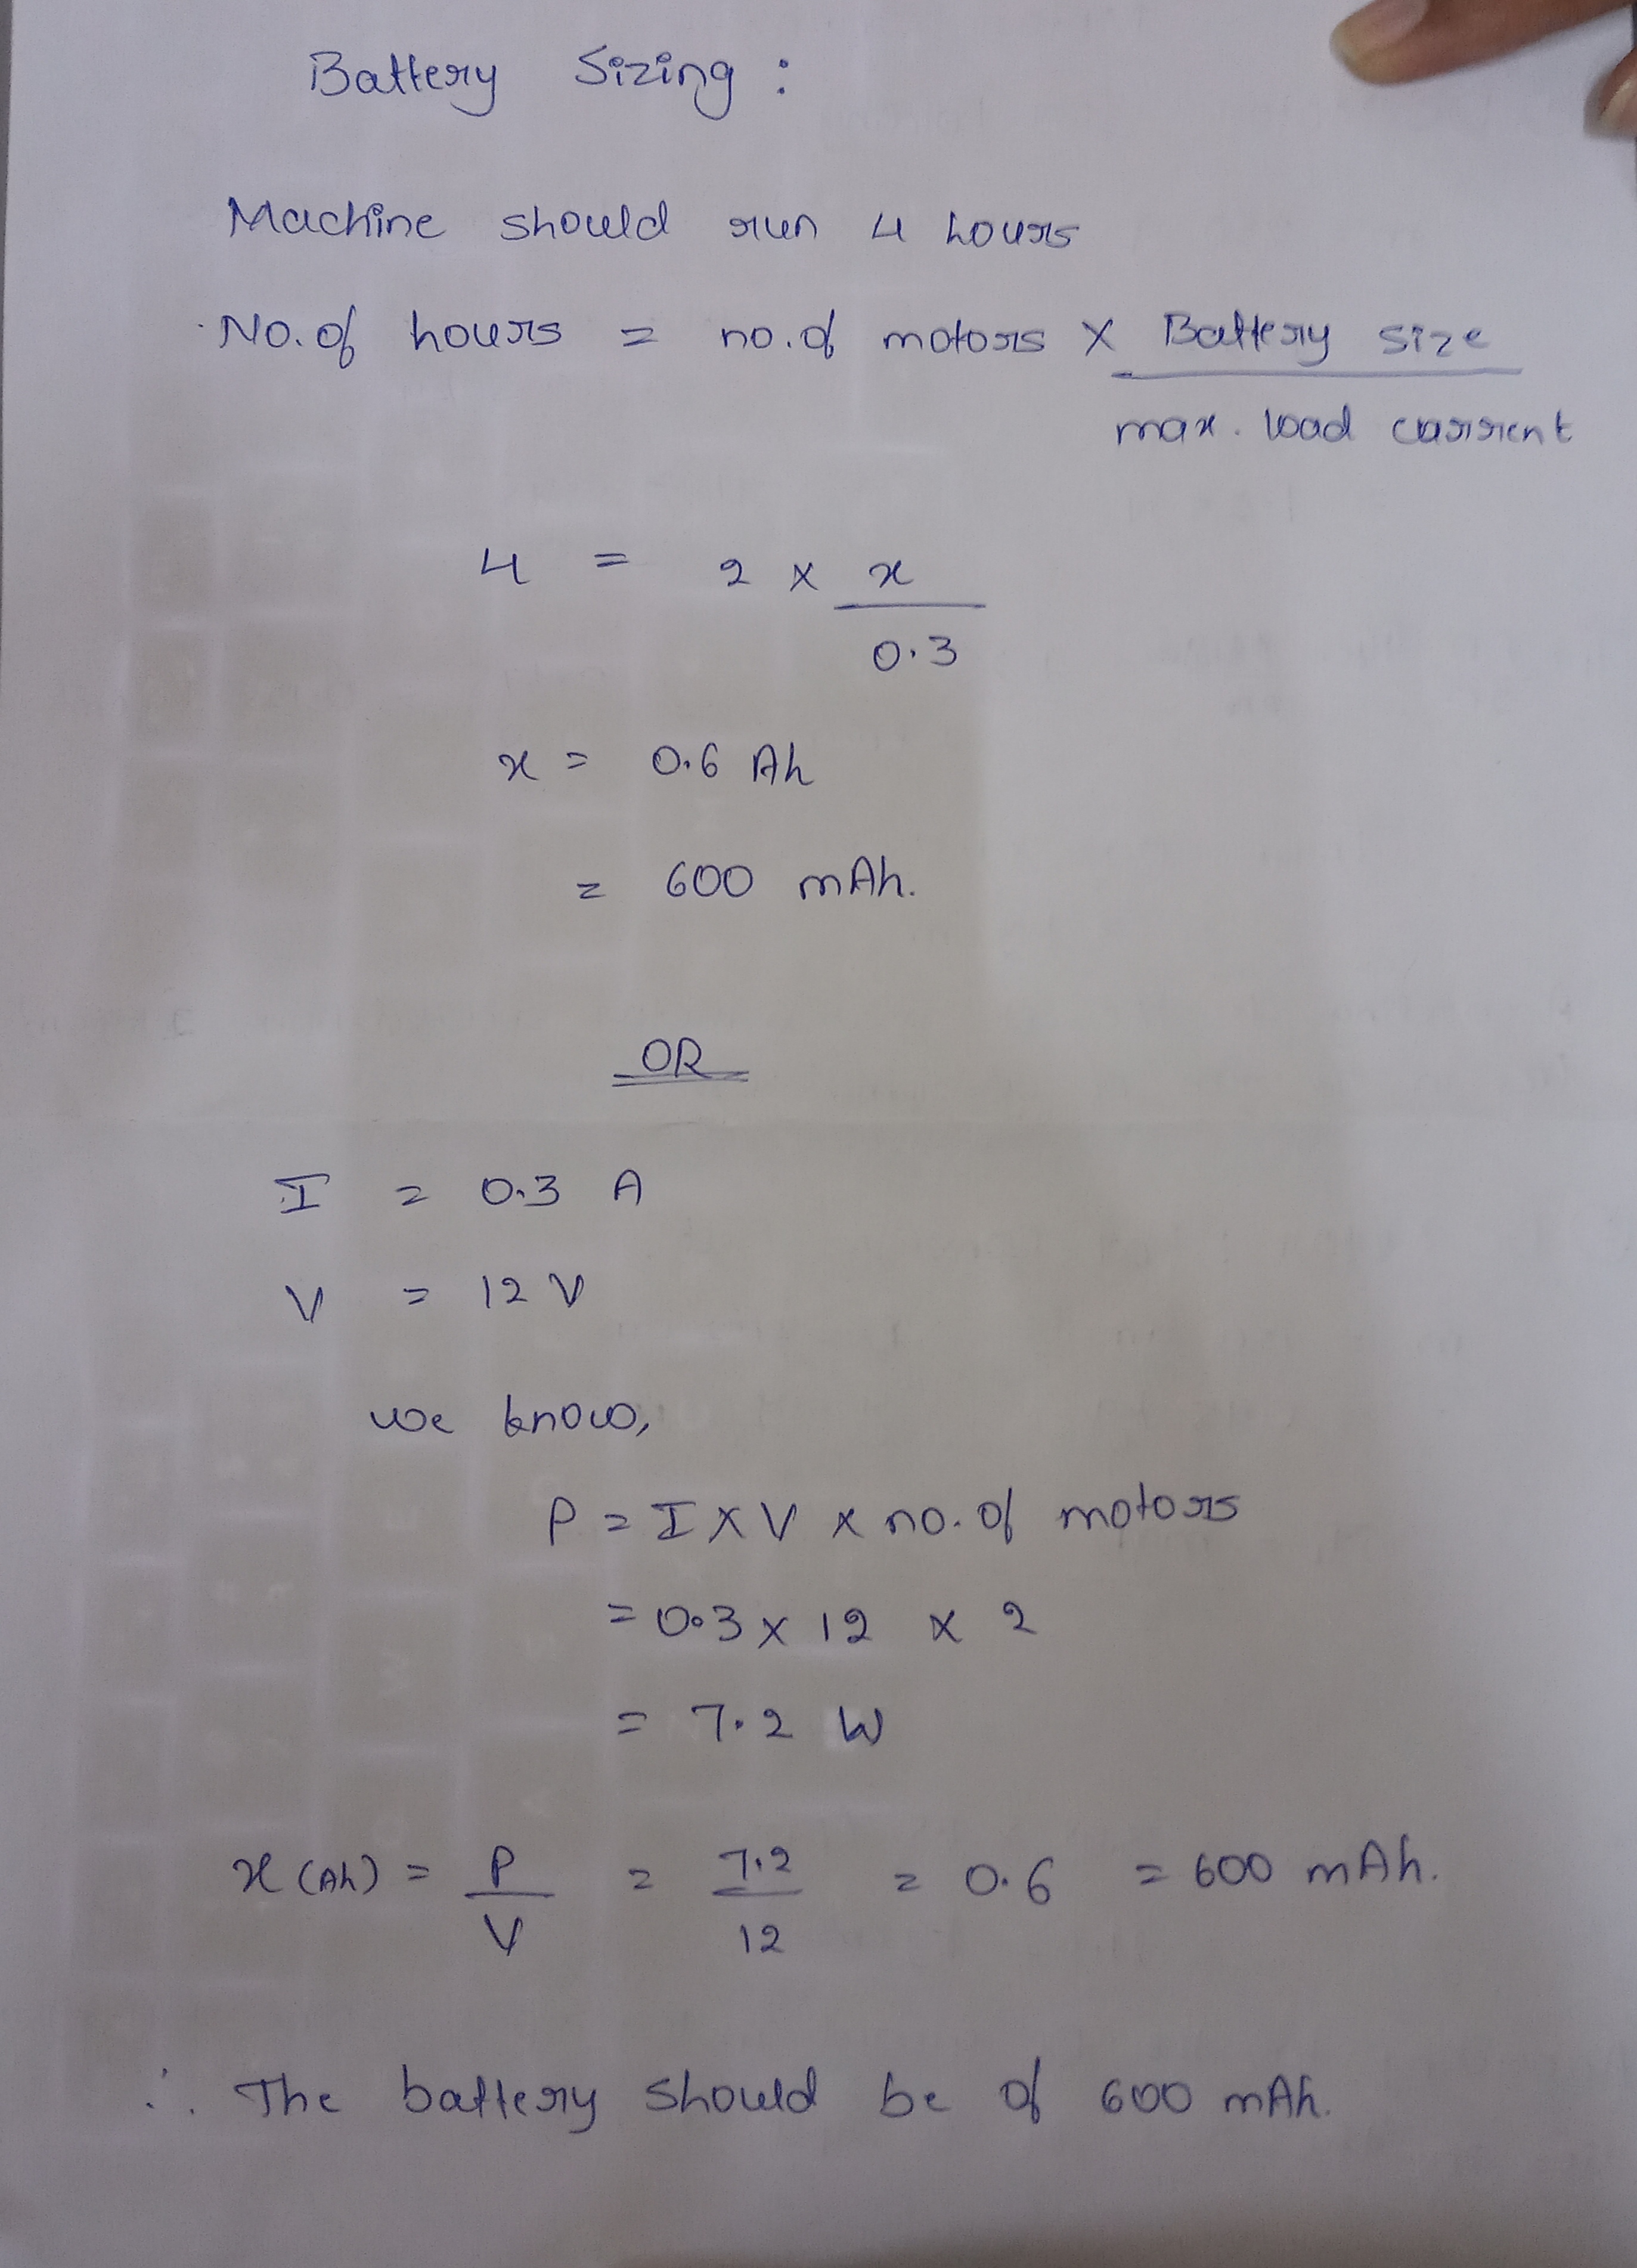 Battery Sizing :
Machine should run 4 hours
No. of hours = no. of motors × Battery size
max. load current
4 = 2 × x
0.3
x = 0.6 Ah
= 600 mAh.
OR
I = 0.3 A
V = 12 V
we know,
P = I × V × no. of motors
= 0.3 × 12 × 2
= 7.2 W
x (Ah) = P = 7.2 = 0.6 = 600 mAh.
V 12
∴ The battery should be of 600 mAh.